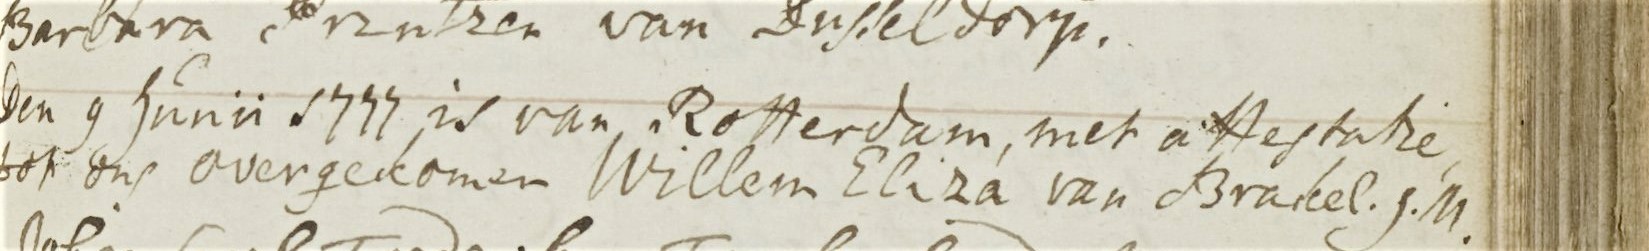 Barbara van Dusseldorp.
Den 9 Junii 1777 is van Rotterdam, met attestatie,
tot ons overgekomen Willem Eliza van Brakel. j. M.